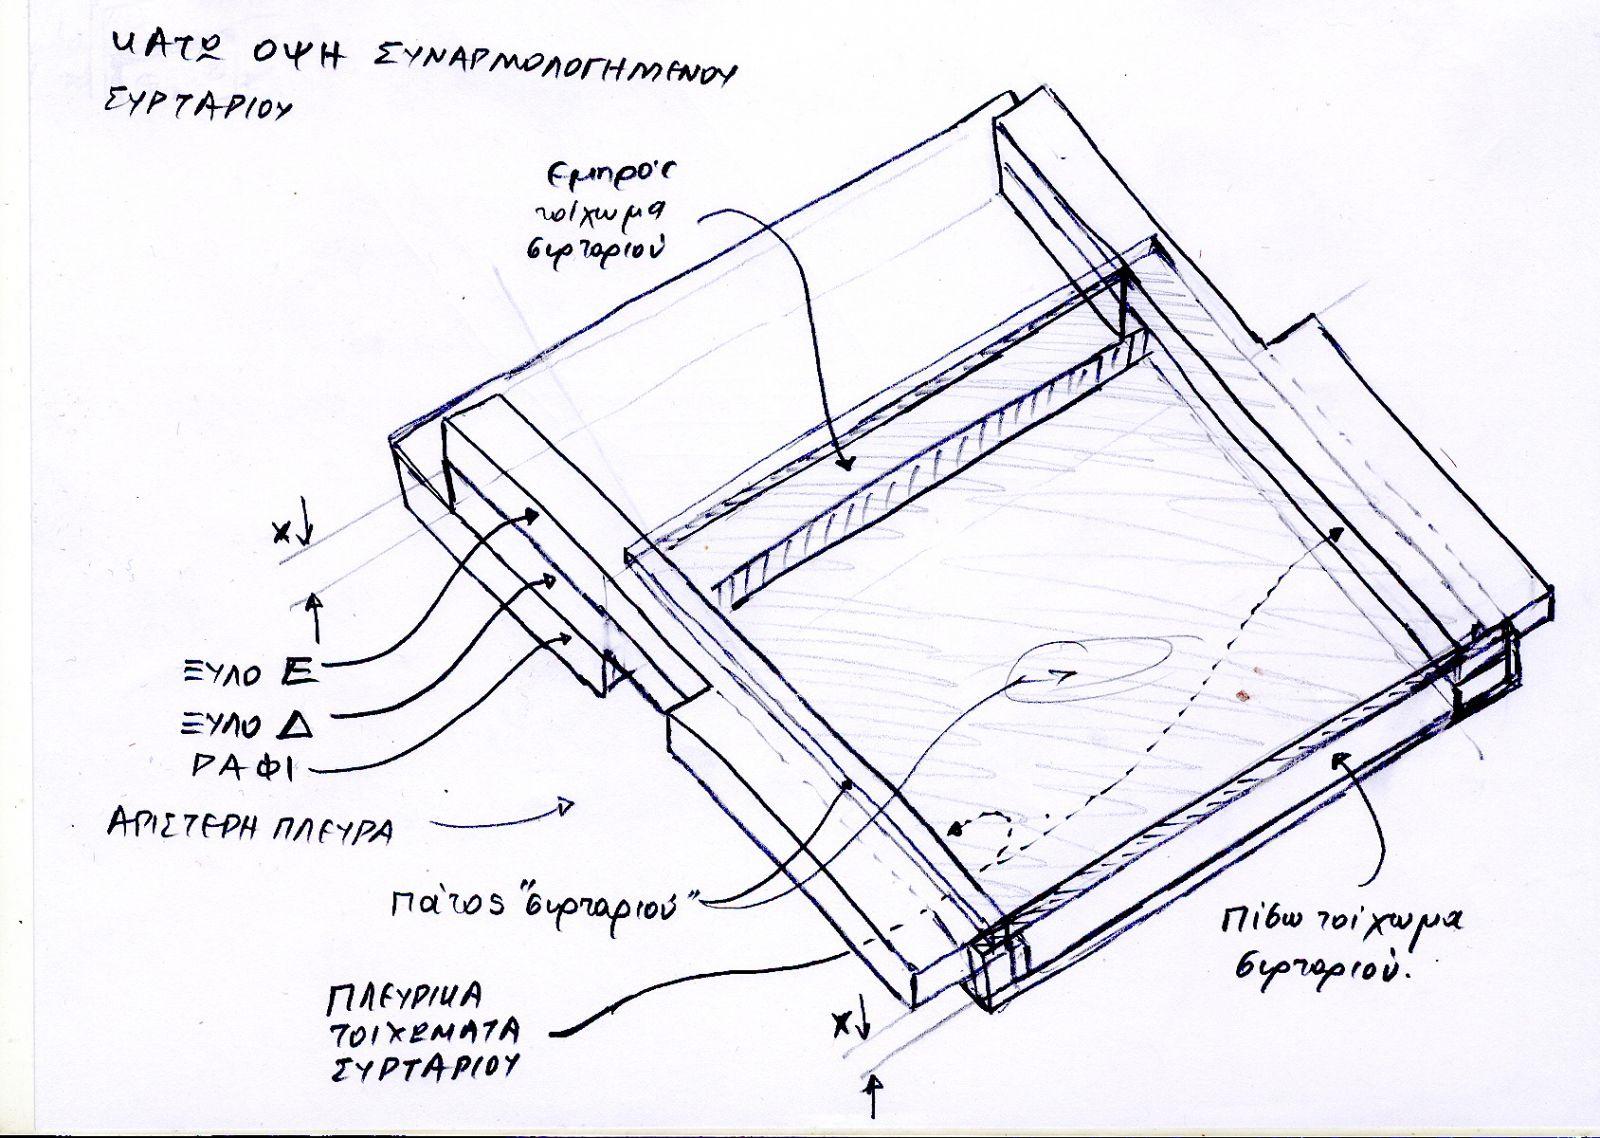 ΚΑΤΩ ΟΨΗ ΣΥΝΑΡΜΟΛΟΓΗΜΕΝΟΥ
ΣΥΡΤΑΡΙΟΥ
Εμπρός
τοίχωμα
συρταριού
X
ΞΥΛΟ Ε
ΞΥΛΟ Δ
ΡΑΦΙ
ΑΡΙΣΤΕΡΗ ΠΛΕΥΡΑ
Πάτος "συρταριού"
Πίσω τοίχωμα
συρταριού.
ΠΛΕΥΡΙΚΑ
ΤΟΙΧΩΜΑΤΑ
ΣΥΡΤΑΡΙΟΥ
X